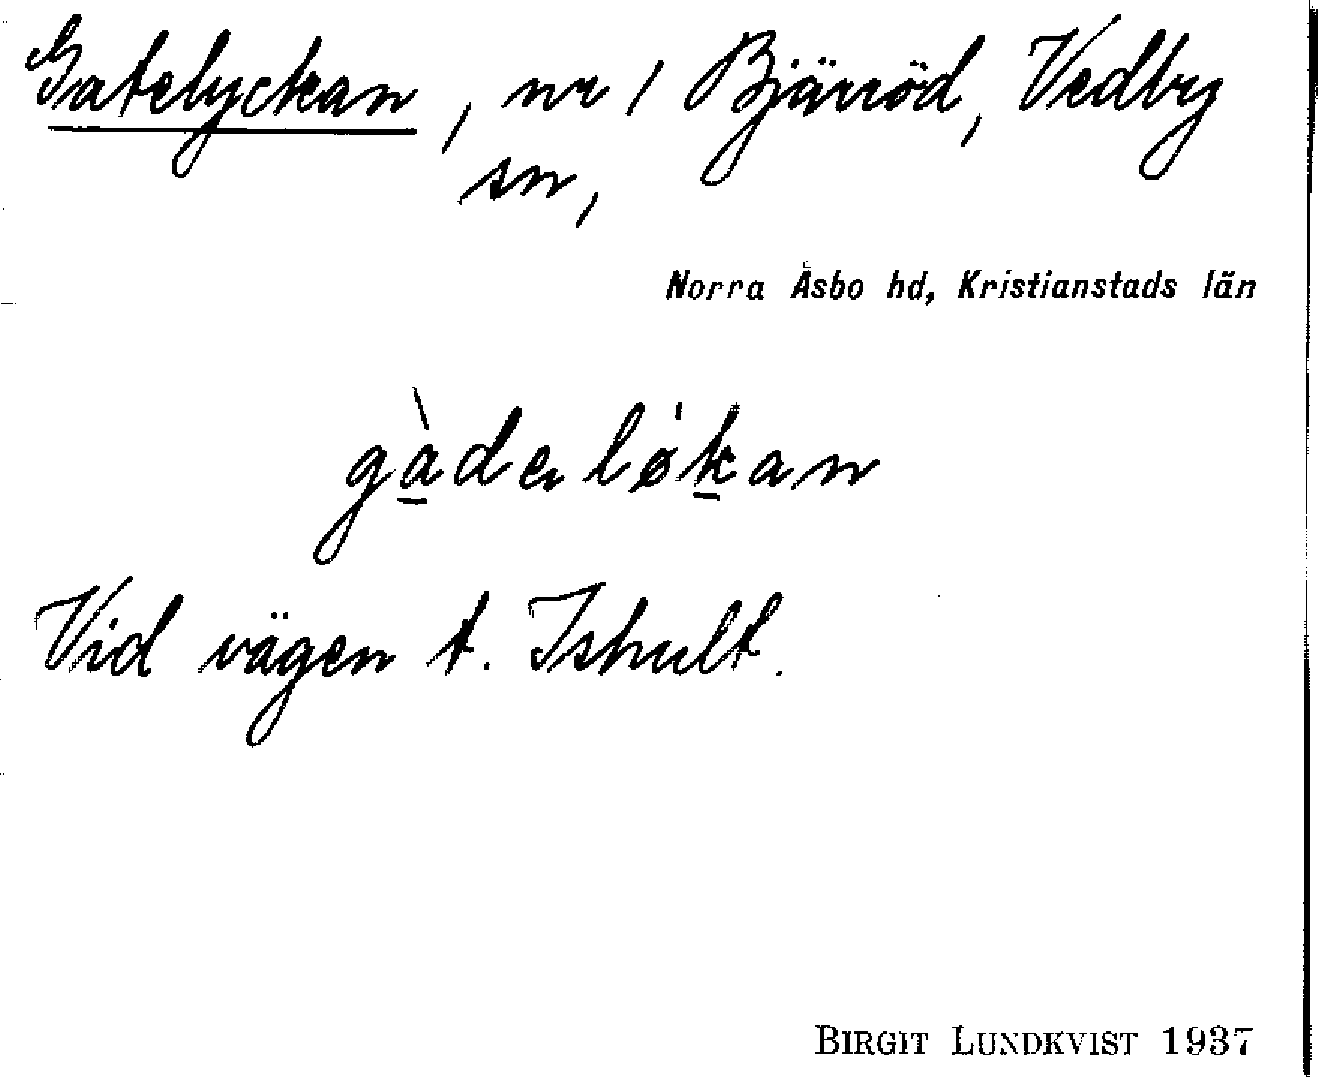 Gatelyckan, nr 1 Bjärröd, Vedby
sn,
Norra Åsbo hd, Kristianstads län
gàdeløkan
Vid vägen t. Ishult.
BIRGIT LUNDKVIST 1937